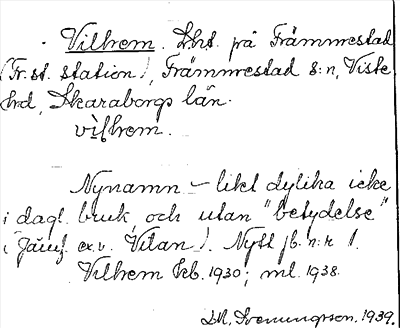 Vilhem. Lht. på Främmestad
(Fr. st. station), Främmestad s:n, Viste
hd, Skaraborgs län.
vilhem.
Nynamn – likt dylika icke
i dagl. bruk och utan "betydelse"
(jämf. ex.v. Vilan). Nytt jb. n:r 1.
Vilhem kb. 1930; ml. 1938.
1939.